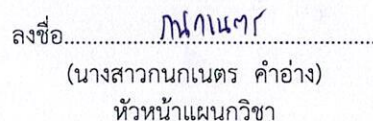 ลงชื่อ.......กนกเนตร.......
(นางสาวกนกเนตร คำอ่าง)
หัวหน้าแผนกวิชา